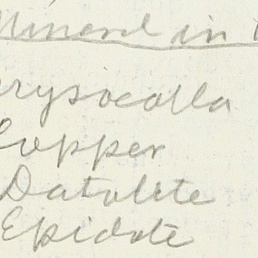 Mineral in
rysocolla
Copper
Datolite
Epidote